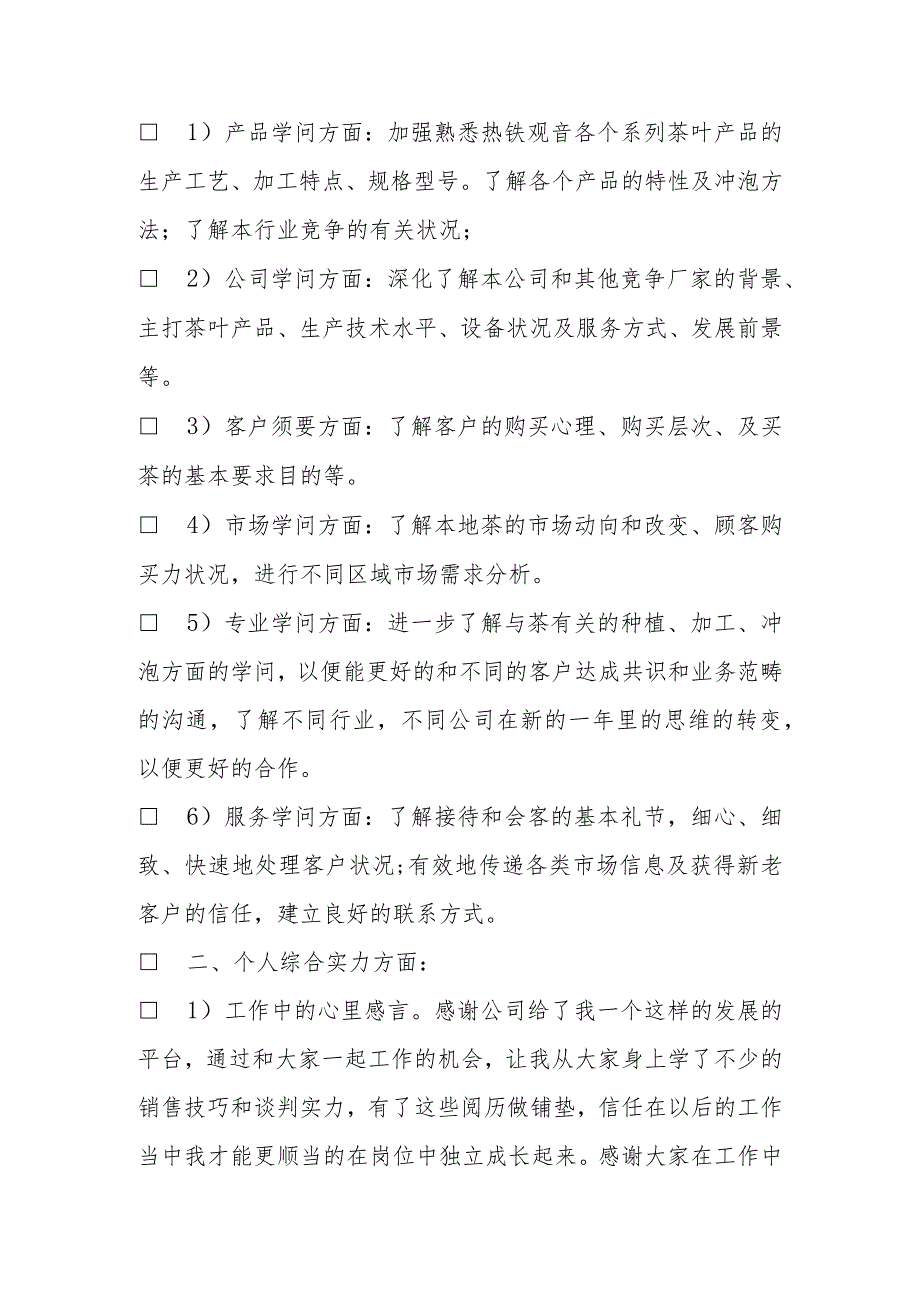 □ 1）产品学问方面：加强熟悉热铁观音各个系列茶叶产品的
生产工艺、加工特点、规格型号。了解各个产品的特性及冲泡方
法；了解本行业竞争的有关状况；
□ 2）公司学问方面：深化了解本公司和其他竞争厂家的背景、
主打茶叶产品、生产技术水平、设备状况及服务方式、发展前景
等。
□ 3）客户须要方面：了解客户的购买心理、购买层次、及买
茶的基本要求目的等。
□ 4）市场学问方面：了解本地茶的市场动向和改变、顾客购
买力状况，进行不同区域市场需求分析。
□ 5）专业学问方面：进一步了解与茶有关的种植、加工、冲
泡方面的学问，以便能更好的和不同的客户达成共识和业务范畴
的沟通，了解不同行业，不同公司在新的一年里的思维的转变，
以便更好的合作。
□ 6）服务学问方面：了解接待和会客的基本礼节，细心、细
致、快速地处理客户状况;有效地传递各类市场信息及获得新老
客户的信任，建立良好的联系方式。
□ 二、个人综合实力方面：
□ 1）工作中的心里感言。感谢公司给了我一个这样的发展的
平台，通过和大家一起工作的机会，让我从大家身上学了不少的
销售技巧和谈判实力，有了这些阅历做铺垫，信任在以后的工作
当中我才能更顺当的在岗位中独立成长起来。感谢大家在工作中